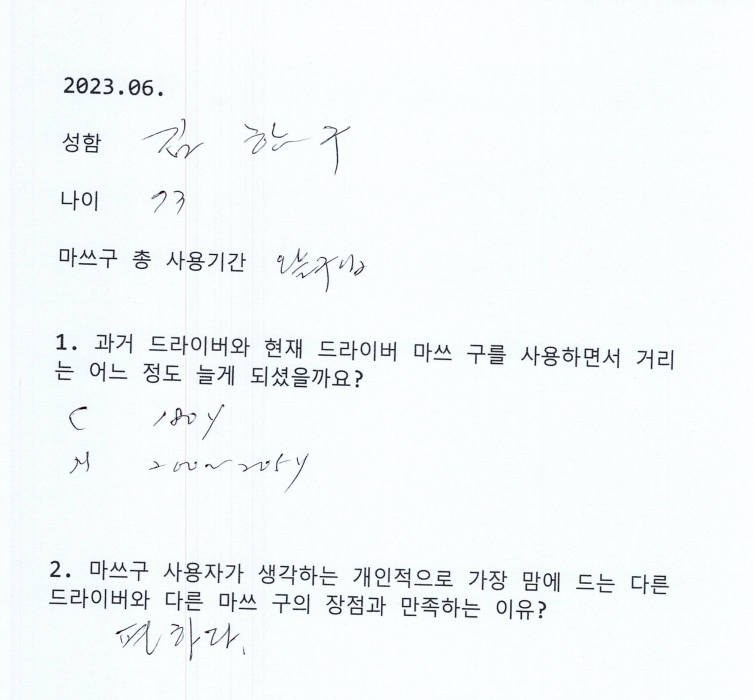 2023.06.
성함 김 한 구
나이 73
마쓰구 총 사용기간
1. 과거 드라이버와 현재 드라이버 마쓰 구를 사용하면서 거리
는 어느 정도 늘게 되셨을까요?
C 180y
M 200~205y
2. 마쓰구 사용자가 생각하는 개인적으로 가장 맘에 드는 다른
드라이버와 다른 마쓰 구의 장점과 만족하는 이유?
편하다.